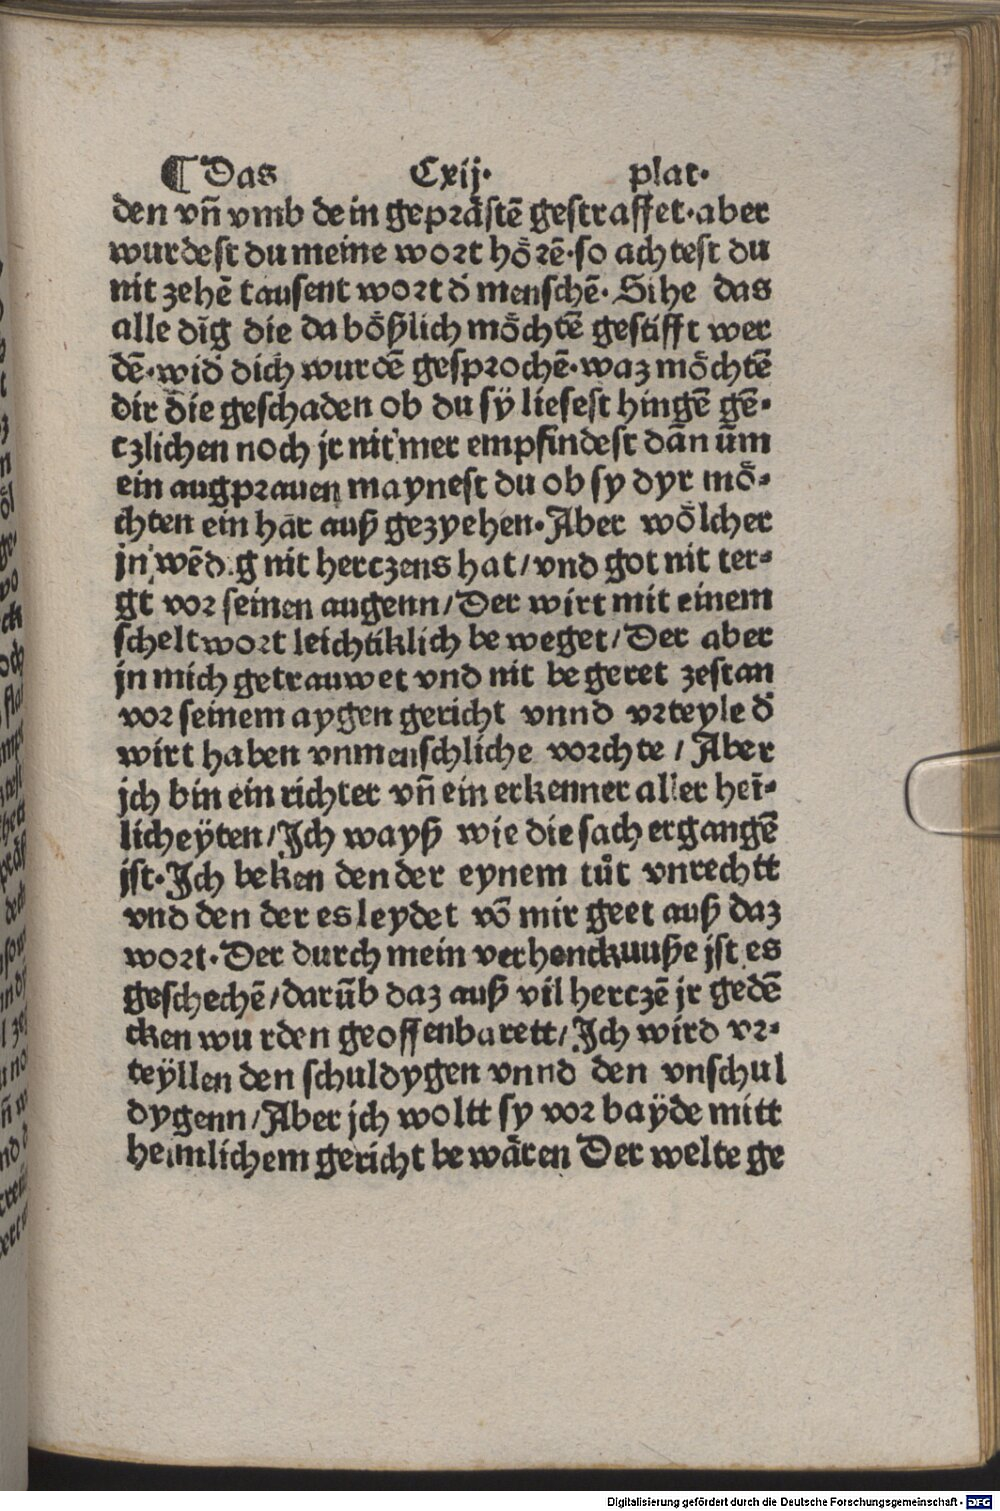 ¶ Das Cxij· plat·
den vn̄ vmb dein gepräſtē geſtraffet·aber
wurdeſt du meine wort hörē·ſo achteſt du
nit zehē tauſent wort d̄ menſchē· Sihe das
alle dīg die da bößlich möchtē geſtifft wer
dē·wid̄ dich wurdē geſprochē·waz möchtē
dir die geſchaden ob du ſÿ lieſeſt hingē gē⸗
tzlichen noch jr nit mer empfindeſt dān ūm
ein augprauen mayneſt du ob ſy dyr mö⸗
chten ein har auß gezyehen·Aber wölcher
jn wēd.g nit herczens hat/vnd got nit ter⸗
gt vor ſeinen augenn/Der wirt mit einem
ſcheltwort leichtiklich be weget/Der aber
jn mich getrauwet vnd nit be geret zeſtan
vor ſeinem aygen gericht vnnd vrteyle d̄
wirt haben vnmenſchliche vorchte / Aber
jch bin ein richter vn̄ ein erkenner aller heī⸗
licheÿten/Jch wayß wie die ſach ergangē
jſt·Jch beken den der eynem tůt vnrechtt
vnd den der es leydet vō mir geet auß daz
wort·Der durch mein verhenckuuße jſt es
geſchechē/darūb daz auß vil herczē jr gedē
cken wurden geoffenbarett/Jch wird vr⸗
teÿllen den ſchuldygen vnnd den vnſchul
dygenn/Aber jch woltt ſy vor baÿde mitt
heimlichem gericht be wären Der welte ge
Digitalisierung gefördert durch die Deutsche Forschungsgemeinschaft - DFG